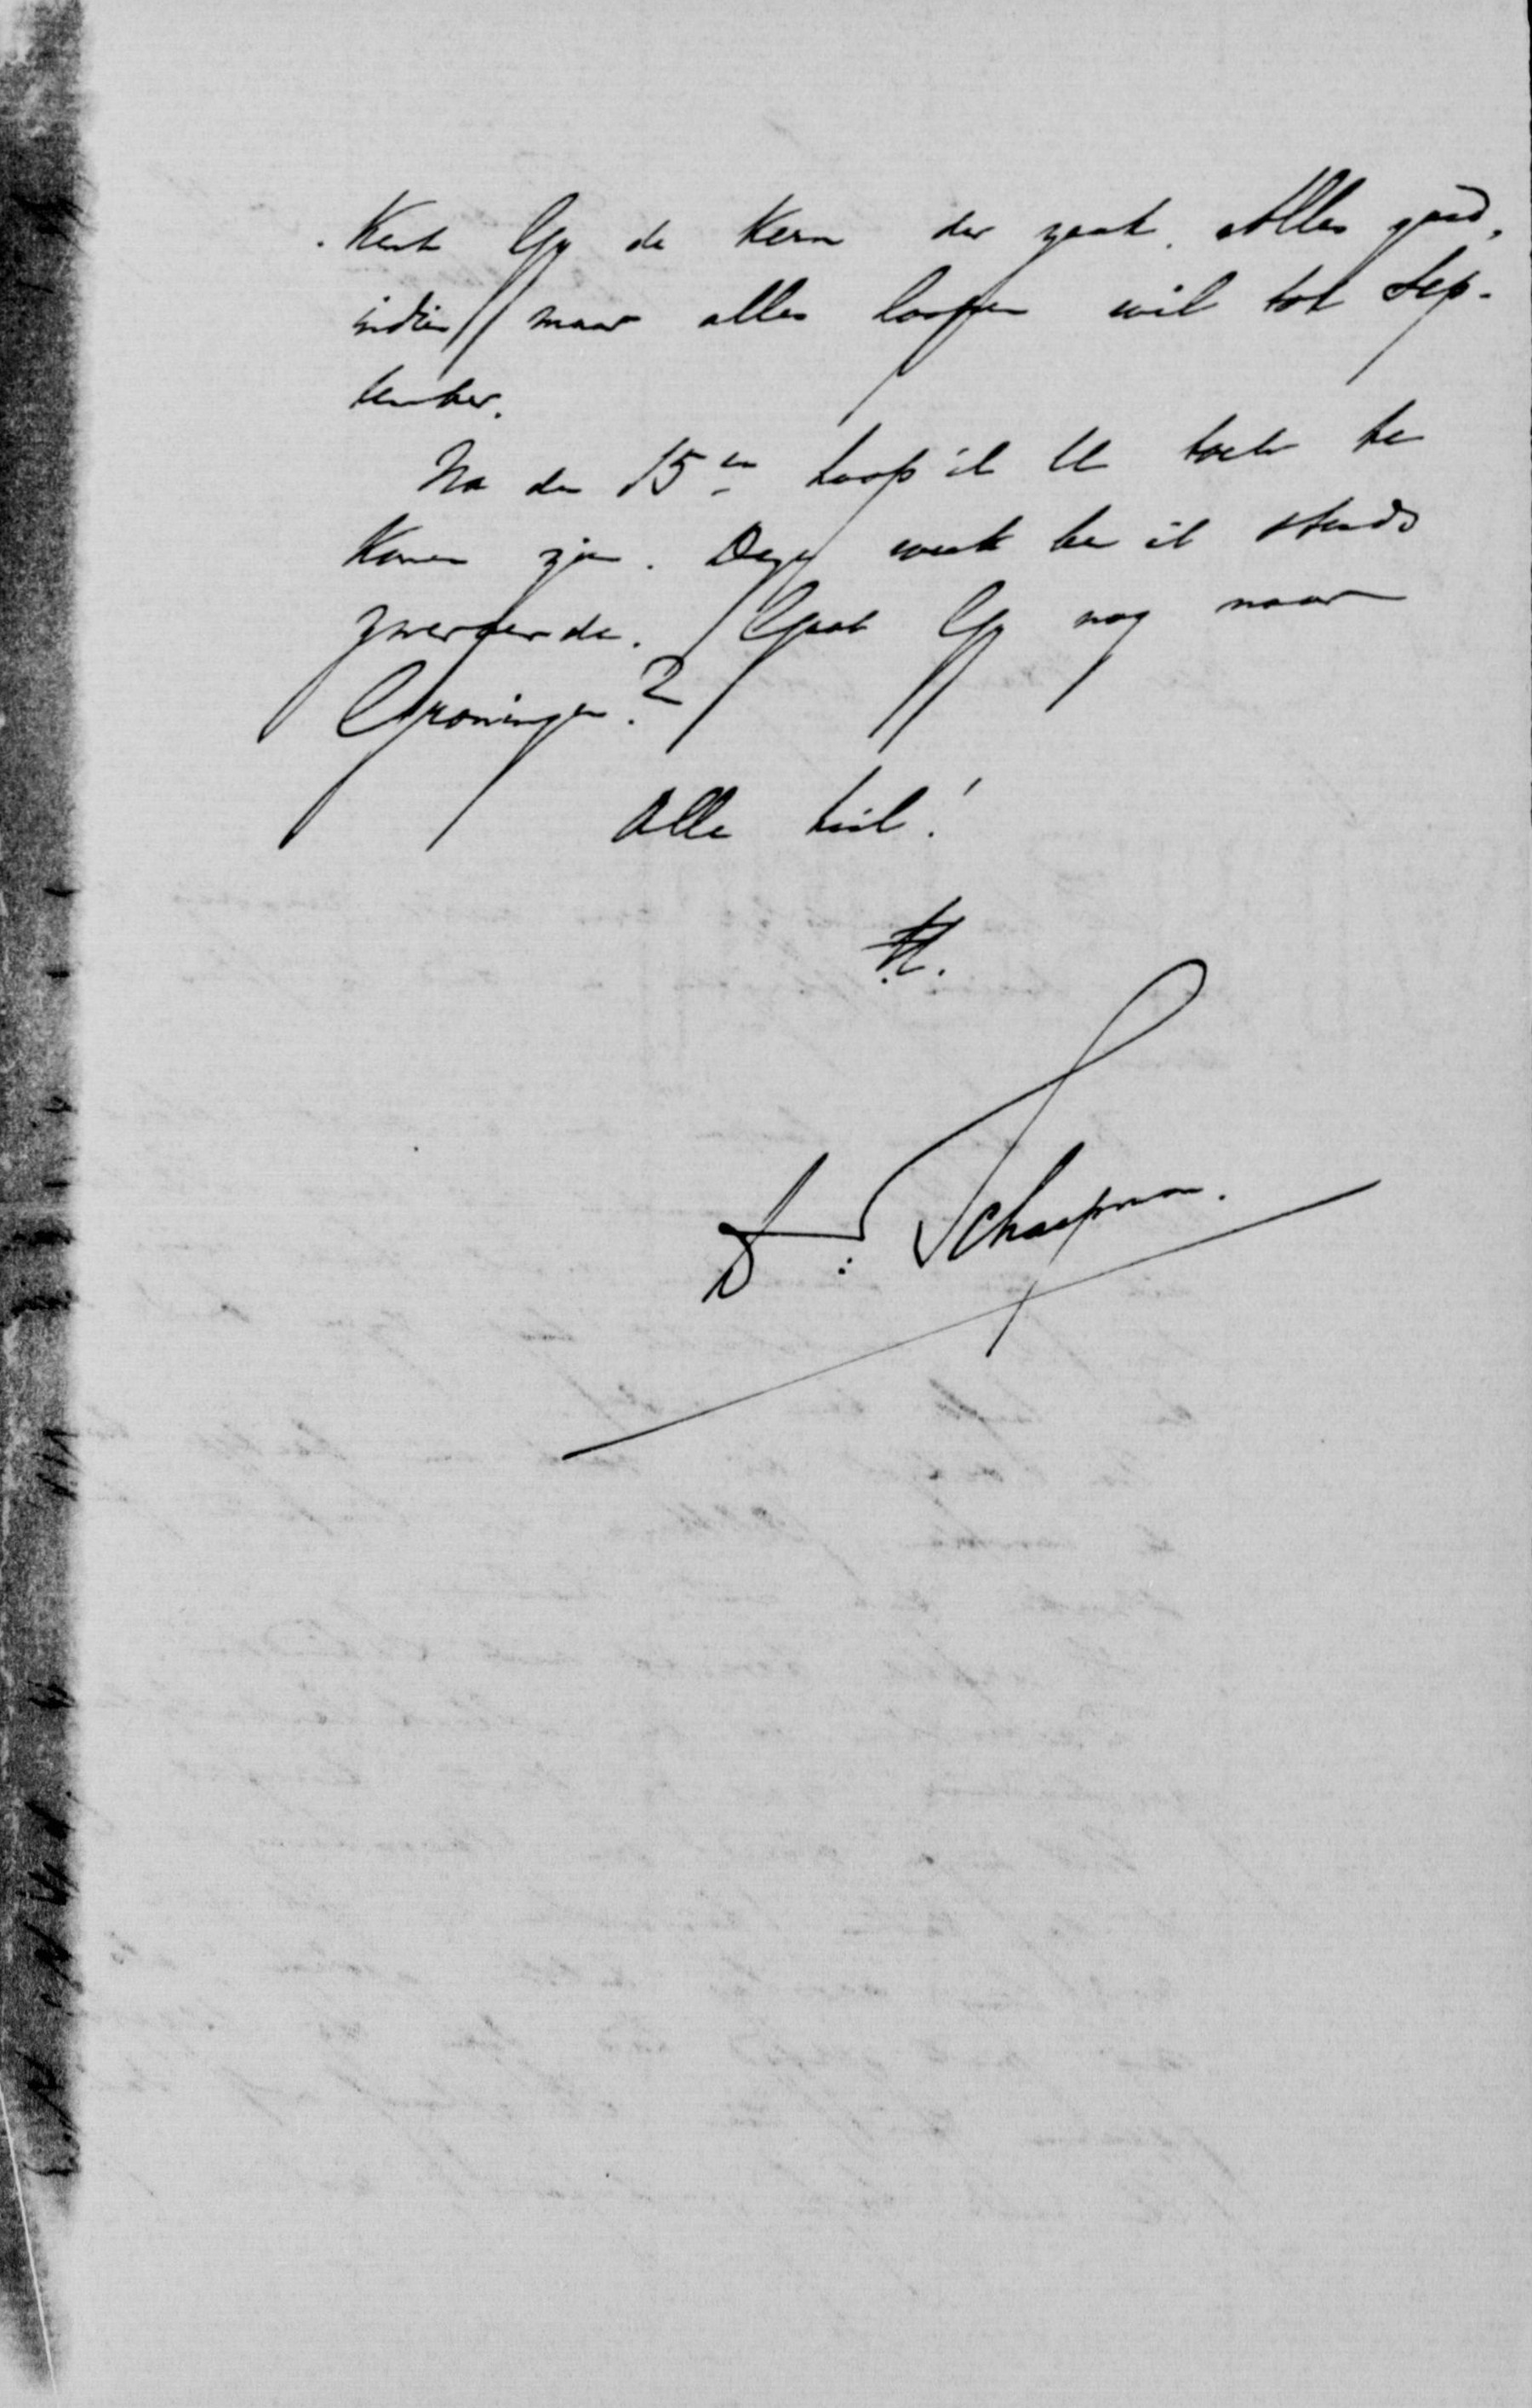 Kent Gy de kern der zaak. Alles goed,
indien maar alles loopen wil tot Sep-
tember.
Na den 15en hoop ik U toch te
komen zien. Deze week ben ik steeds
zwervende. Gaat Gy nog naar
Groningen?
Alle heil!
tt.
Dr: Schaepman.